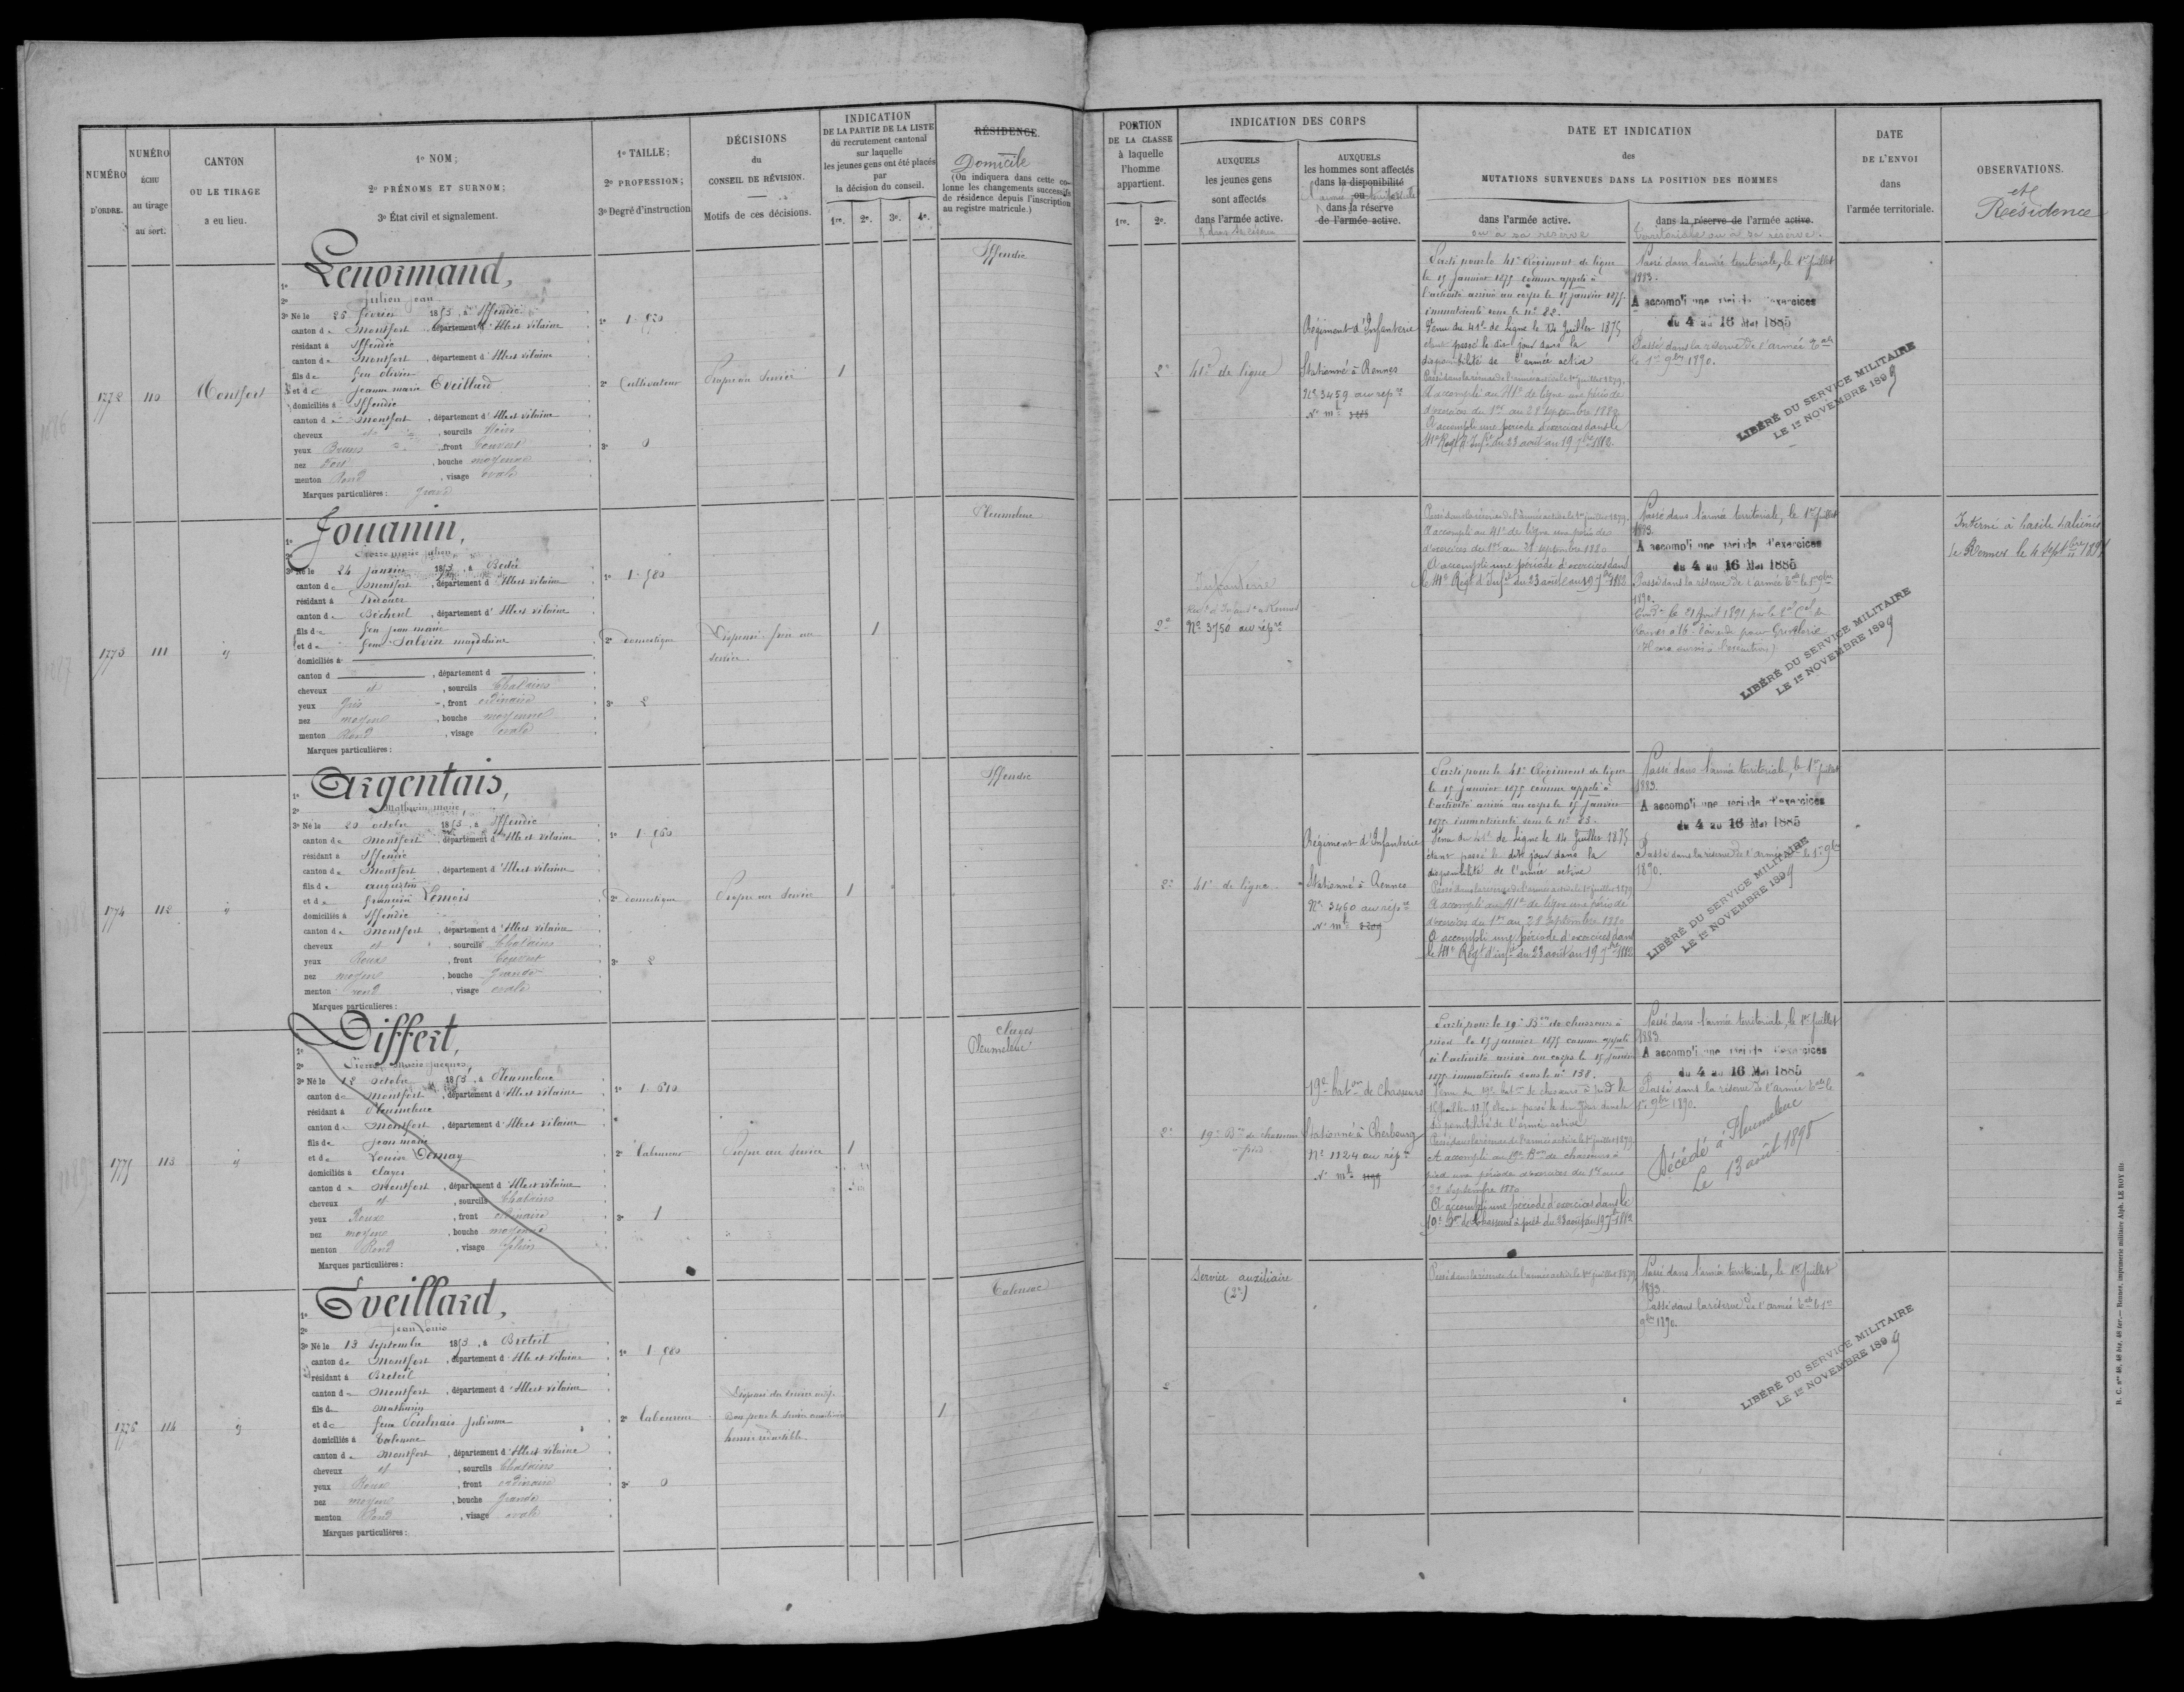 NUMÉRO
D'ORDRE.
NUMÉRO
ÉCHU
au tirage
au sort.
CANTON
OU LE TIRAGE
a eu lieu.
1º NOM;
2º PRÉNOMS ET SURNOM;
3º État civil et signalement.
1º TAILLE;
2º PROFESSION;
3º Degré d'instruction
DÉCISIONS
du
CONSEIL DE RÉVISION.
Motifs de ces décisions.
INDICATION
DE LA PARTIE DE LA LISTE
du recrutement cantonal
sur laquelle
les jeunes gens ont été placés
par
la décision du conseil.
1re. 2e. 3e. 4e.
RÉSIDENCE.
Domicile
(On indiquera dans cette co-
lonne les changements successifs
de résidence depuis l'inscription
au registre matricule.)
1772
110
Montfort
Lenormand,
Julien Jean
3º Né le 25 février 1853, à Iffendic
canton de Montfort, département d'Ille et vilaine
résidant à Iffendic
canton de Montfort, département d'Ille et vilaine
fils de feu olivier
et de jeanne marie Eveillard
domiciliés à Iffendic
canton de Montfort, département d'Ille et vilaine
cheveux et, sourcils Noirs
yeux Bruns, front Couvert
nez Fort, bouche moyenne
menton Rond, visage ovale
Marques particulières: Gravé
2º Cultivateur
3º 0
Propre au Service
1
Iffendic
1773
111
Jouanin,
Pierre marie julien
3º Né le 24 janvier 1853, à Bédée
canton de Montfort, département d'Ille et vilaine
résidant à Irodouer
canton de Bécherel, département d'Ille et vilaine
fils de feu Jean marie
et de feue Salvin magdeleine
domiciliés à
canton d, département d
cheveux et, sourcils Chatains
yeux Gris, front ordinaire
nez moyen, bouche moyenne
menton Rond, visage ovale
Marques particulières:
1º 1.580
2º domestique
3º 2
service.
1
Pleumeleuc
1774
112
Argentais,
Mathurin marie
3º Né le 20 octobre 1853, à Iffendic
canton de Montfort, département d'Ille et vilaine
résidant à Iffendic
canton de Montfort, département d'Ille et vilaine
fils de augustin
et de françoise Lemois
domiciliés à Iffendic
canton de Montfort, département d'Ille et vilaine
cheveux et, sourcils Chatains
yeux Roux, front Couvert
nez moyen, bouche Grande
menton rond, visage ovale
Marques particulières:
2º domestique
3º 2
Propre au Service
1
Iffendic
1775
113
Differt,
Pierre Marie Jacques
3º Né le 12 octobre 1853, à Pleumeleuc
canton de Montfort, département d'Ille et vilaine
résidant à Pleumeleuc
canton de Montfort, département d'Ille et vilaine
fils de Jean marie
et de Louise Demay
domiciliés à Clayes
canton de Montfort, département d'Ille et vilaine
cheveux et, sourcils Chatains
yeux Roux, front ordinaire
nez moyen, bouche moyenne
menton Rond, visage plein
Marques particulières:
2º Laboureur
3º 1
Propre au Service
1
Clayes
Pleumeleuc
1776
114
Eveillard,
Jean Louis
3º Né le 13 Septembre 1853, à Breteil
canton de Montfort, département d'Ille et vilaine
résidant à Breteil
canton de Montfort, département d'Ille et vilaine
fils de Mathurin
et de feue Poulnais Julienne
domiciliés à Talensac
canton de Montfort, département d'Ille et vilaine
cheveux et, sourcils Chatains
yeux Roux, front ordinaire
nez moyen, bouche Grande
menton Rond, visage ovale
Marques particulières:
2º Laboureur
3º 0
Bon pour le service auxiliaire
hernie réductible.
1
Talensac
PORTION
DE LA CLASSE
à laquelle
l'homme
appartient.
1re. 2e.
INDICATION DES CORPS
AUXQUELS
les jeunes gens
sont affectés
dans l'armée active.
& dans sa réserve
AUXQUELS
les hommes sont affectés
dans la disponibilité
ou
dans la réserve
de l'armée active.
DATE ET INDICATION
des
MUTATIONS SURVENUES DANS LA POSITION DES HOMMES
dans l'armée active.
ou à sa réserve
dans la réserve de l'armée active.
territoriale ou à sa réserve.
DATE
DE L'ENVOI
dans
l'armée territoriale.
OBSERVATIONS.
et
Résidence
2e
41e de ligne
Régiment d'Infanterie
Stationné à Rennes
Nº 3459 au répre
Parti pour le 41e Régiment de ligne
le 15 Janvier 1875 comme appelé à
l'activité arrivé au corps le 15 janvier 1875
immatriculé sous le nº 82.
Venu du 41e de ligne le 14 Juillet 1875
étant passé le dit jour dans la
disponibilité de l'armée active
Passé dans la réserve de l'armée active le 1er juillet 1879.
A accompli au 41e de ligne une période
d'exercices du 1er au 28 septembre 1880
A accompli une période d'exercices dans le
41e Regt d'Infie du 23 août au 19 7bre 1882.
Passé dans l'armée territoriale, le 1er Juillet
1883.
A accompli une période d'exercices
du 4 au 16 Mai 1885
Passé dans la réserve de l'armée tale
le 1er 9bre 1890.
LIBÉRÉ DU SERVICE MILITAIRE
LE 1er NOVEMBRE 1899
2e
Infanterie
Nº 3750 au répre
Passé dans la réserve de l'armée active le 1er juillet 1879.
A accompli au 41e de ligne une période
d'exercices du 1er au 28 septembre 1880
A accompli une période d'exercices dans
le 41e Regt d'Infie du 23 août au 19 7bre 1882
Passé dans l'armée territoriale, le 1er Juillet
1883.
A accompli une période d'exercices
du 4 au 16 Mai 1885
Passé dans la réserve de l'armée tale le 1er 9bre
1890.
LIBÉRÉ DU SERVICE MILITAIRE
LE 1er NOVEMBRE 1899
2e
41e de ligne
Régiment d'Infanterie
Stationné à Rennes
Nº 3460 au répre
Parti pour le 41e Régiment de ligne
le 15 Janvier 1875 comme appelé à
l'activité arrivé au corps le 15 Janvier
1875 immatriculé sous le nº 83.
Venu du 41e de Ligne le 14 Juillet 1875
étant passé le dit jour dans la
disponibilité de l'armée active
Passé dans la réserve de l'armée active le 1er juillet 1879
A accompli au 41e de ligne une période
d'exercices du 1er au 28 Septembre 1880
A accompli une période d'exercices dans
le 41e Regt d'infie du 23 août au 19 7bre 1882
Passé dans l'armée territoriale, le 1er Juillet
1883.
A accompli une période d'exercices
du 4 au 16 Mai 1885
Passé dans la réserve de l'armée tale le 1er 9bre
1890.
LIBÉRÉ DU SERVICE MILITAIRE
LE 1er NOVEMBRE 1899
2e
19e Bon de chasseurs
à pied
19e baton de Chasseurs
Stationné à Cherbourg
Nº 1124 au répre
Parti pour le 19e Bon de chasseurs à
pied le 15 janvier 1875 comme appelé
à l'activité arrivé au corps le 15 janvier
1875 immatriculé sous le nº 138.
disponibilité de l'armée active
Passé dans la réserve de l'armée active le 1er juillet 1879
A accompli au 19e Bon de chasseurs à
pied une période d'exercices du 1er au
A accompli une période d'exercices dans le
19e Bon de Chasseurs à pied du 23 août au 19 7bre 1882
Passé dans l'armée territoriale, le 1er Juillet
1883
A accompli une période d'exercices
du 4 au 16 Mai 1885
Passé dans la réserve de l'armée tale le
1er 9bre 1890.
Décédé à Pleumeleuc
Le 13 août 1898
2
Service auxiliaire
(2e)
Passé dans la réserve de l'armée active le 1er juillet 1879
Passé dans l'armée territoriale, le 1er Juillet
1883.
Passé dans la réserve de l'armée tale le 1er
9bre 1890.
LIBÉRÉ DU SERVICE MILITAIRE
LE 1er NOVEMBRE 1899
Interné à l'asile d'aliénés
de Rennes le 4 Septbre
R. C. nos 48, 48 bis, 48 ter.— Rennes, imprimerie militaire Alph. LE ROY fils